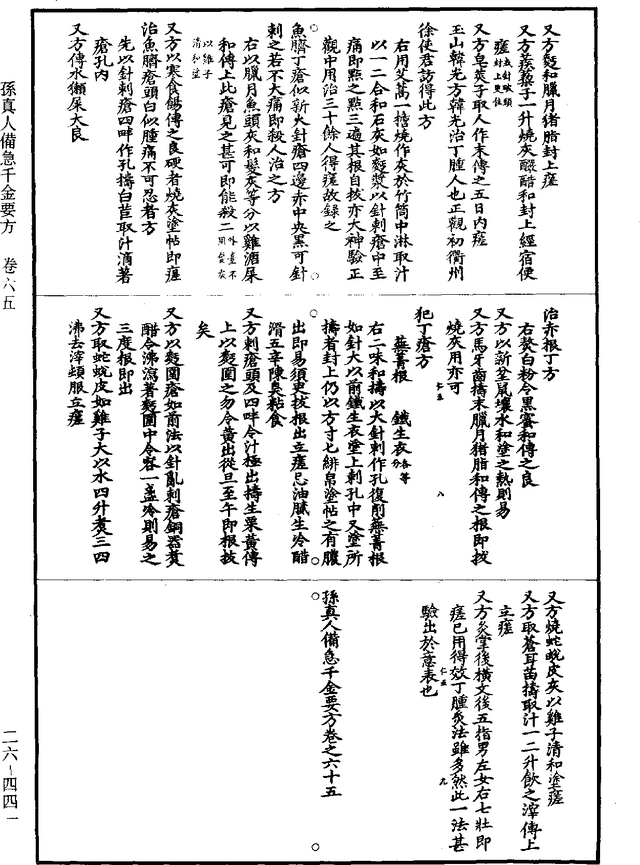 又方麫和臘月猪脂封上瘥
又方蒺藜子一升燒灰釅醋和封上經宿便
瘥或針破頭封上更佳
又方皂莢子取人作末傳之五日内瘥
玉山韓光方韓光治丁腫人也正觀初衢州
徐使君訪得此方
右用艾蒿一擔燒作灰於竹筒中淋取汁
以一二合和石灰如麫漿以針刺瘡中至
痛即點之點三遍其根自拔亦大神驗正
觀中用治三十餘人得瘥故錄之
魚臍丁瘡似新火針瘡四邊赤中央黑可針
刺之若不大痛即殺人治之方
右以臘月魚頭灰和髮灰等分以雞溏屎
和傳上此瘡見之甚可即能殺二外臺不用髮灰
以雞子清和塗
又方以寒食餳傳之良硬者燒灰塗帖即瘥
治魚臍瘡頭白似腫痛不可忍者方
先以針刺瘡四畔作孔擣白苣取汁滴著
瘡孔内
又方傳水獺屎大良
治赤根丁方
右熬白粉令黑蜜和傳之良
又方以新坌鼠壤水和塗之熱則易
又方馬牙齒擣末臘月猪脂和傳之根即拔
燒灰用亦可
犯丁瘡方
蕪菁根 鐵生衣各等分
右二味和擣以大針刺作孔復削蕪菁根
如針大以前鐵生衣塗上刺孔中又塗所
擣者封上仍以方寸七緋帛塗帖之有膿
出即易須更拔根出立瘥忌油膩生冷醋
滑五辛陳臭粘食
又方刺瘡頭及四畔令汁極出擣生栗黃傳
上以麫圍之勿令黃出從旦至午即根拔
矣
又方以麫圍瘡如前法以針亂刺瘡銅器煑
醋令沸瀉著麫圍中令容一盞冷則易之
三度根即出
又方取蛇蛻皮如雞子大以水四升煑三四
沸去滓頓服立瘥
又方燒蛇蛻皮灰以雞子清和塗瘥
又方取蒼耳苗擣取汁一二升飲之滓傳上
立瘥
又方灸掌後橫文後五指男左女右七壯即
瘥已用得效丁腫灸法雖多然此一法甚
驗出於意表也
孫真人備急千金要方卷之六十五
孫真人備急千金要方 卷六五
二六-四四一